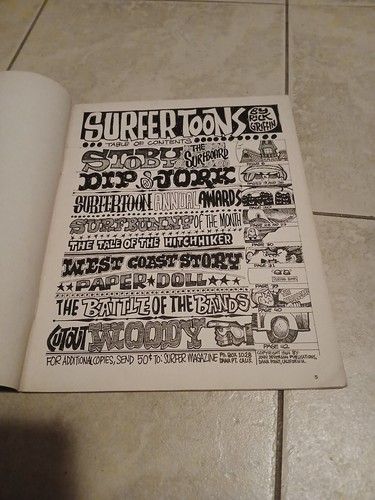 SURFERTOONS BY RICK GRIFFIN
TABLE OF CONTENTS
STOBY THE SURFBOARD
DIP & JORK
SURFERTOON ANNUAL AWARDS
SURFBUNNY OF THE MONTH
THE TALE OF THE HITCHHIKER
PAGE 30
WEST COAST STORY
PAGE 31
PAPER DOLL
PAGE 39
THE BATTLE OF THE BANDS
PAGE 40
CUTOUT WOODY
PAGE 42
FOR ADDITIONAL COPIES, SEND 50¢ TO: SURFER MAGAZINE P.O. BOX 1028 DANA PT. CALIF.
COPYRIGHT
JOHN SEVERSON PUBLICATIONS,
DANA POINT, CALIFORNIA.